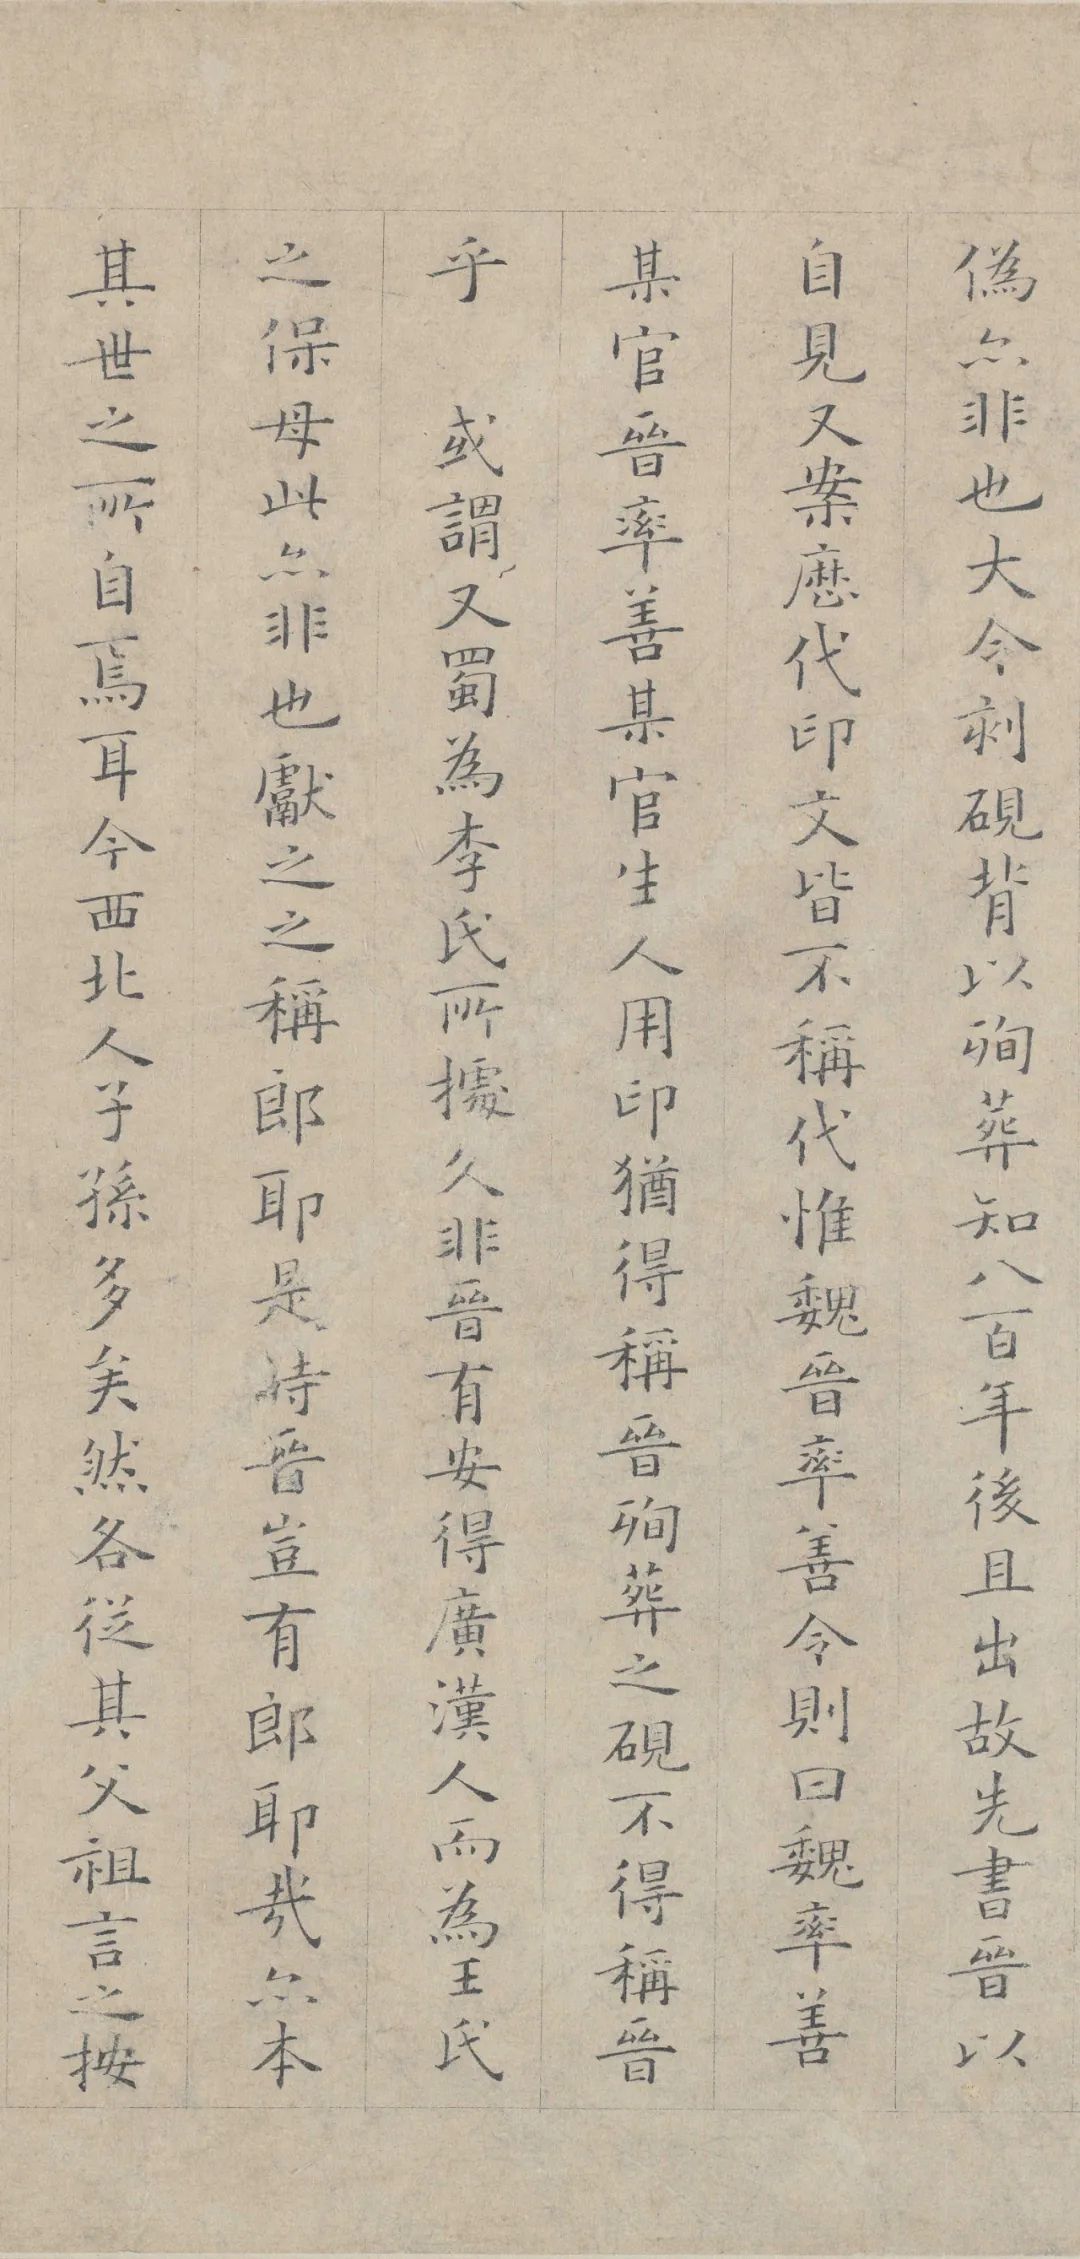 偽亦非也大令刻硯背以殉葬知八百年後且出故先書晉以
自見又案歷代印文皆不稱代惟魏晉率善令則曰魏率善
某官晉率善某官生人用印猶得稱晉殉葬之硯不得稱晉
乎　或謂又蜀為李氏所據久非晉有安得廣漢人而為王氏
之保母此亦非也獻之之稱郎耶是時晉豈有郎耶哉亦本
其世之所自焉耳今西北人子孫多矣然各從其父祖言之按